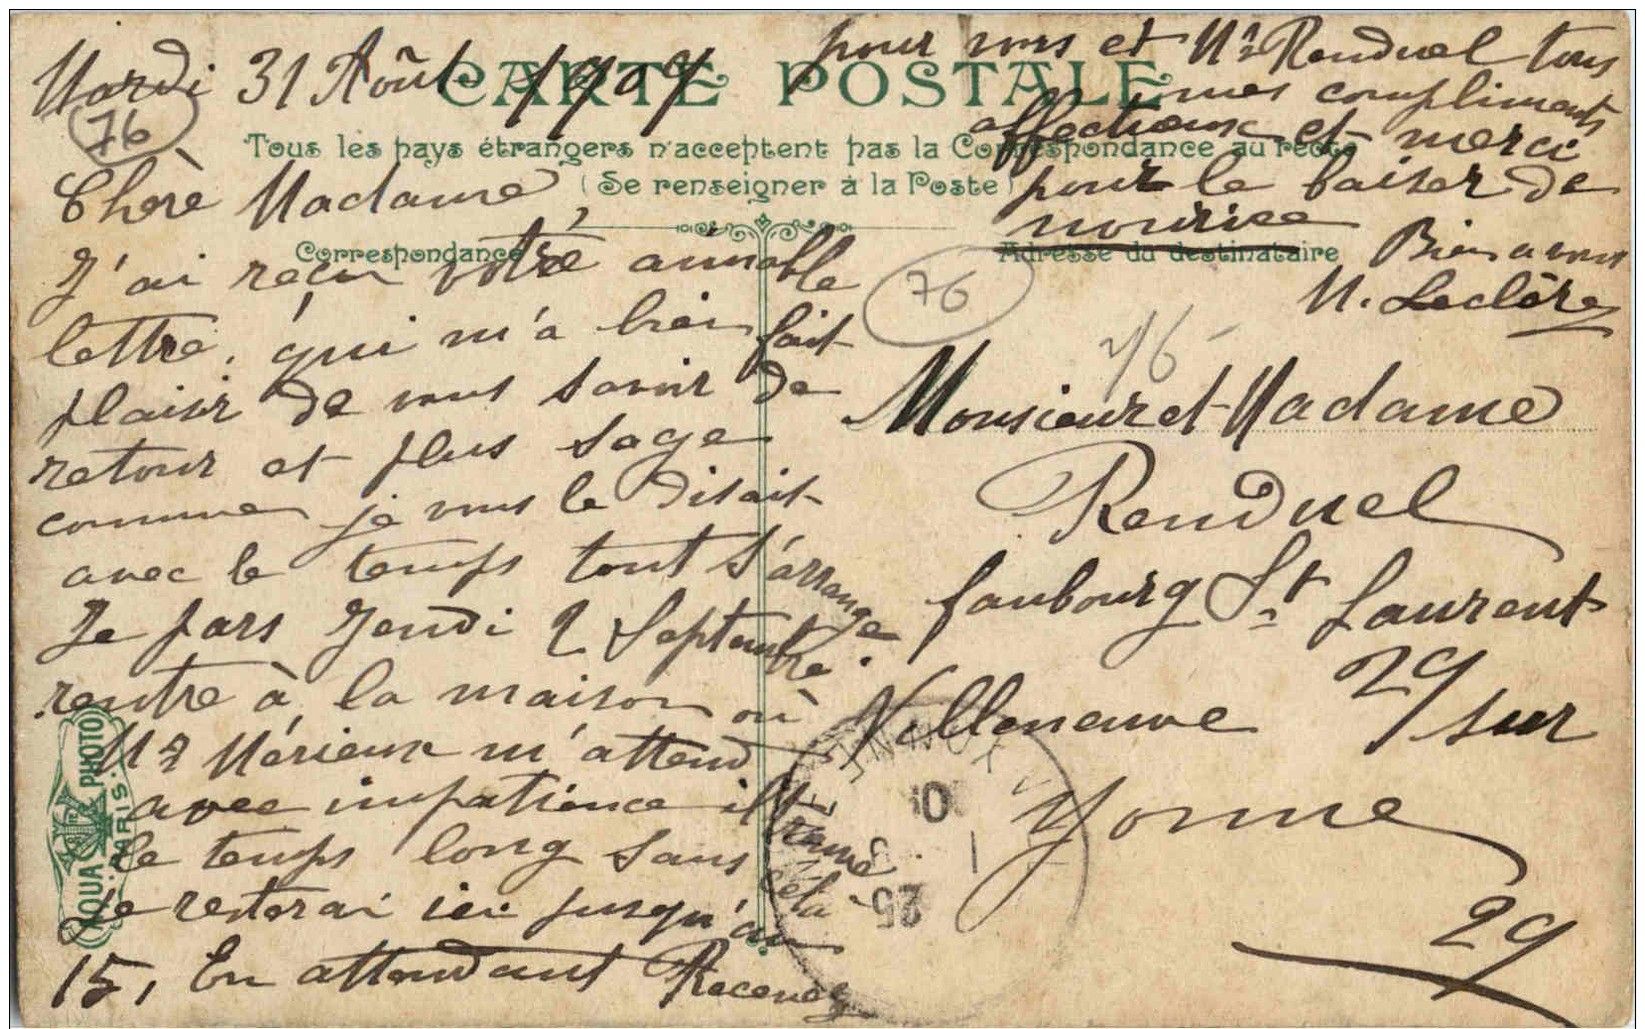 CARTE POSTALE
Tous les pays étrangers n'acceptent pas la Correspondance au recto
(Se renseigner à la Poste)
Correspondance
Adresse du destinataire
Mardi 31 Août 1909
76
Chère Madame,
J'ai reçu votre aimable
lettre, qui m'a bien fait
plaisir de vous savoir de
retour et plus sage
comme je vous le disait
avec le temps tout s'arrange.
Je pars Jeudi 2 Septembre
rentre à la maison où
Mr Mérieux m'attend
avec impatience il trouve
le temps long sans cela
je resterai ici jusqu'au
15, En attendant Recevez
pour vous et Mr Renduel tous
mes compliments
affectueux et merci
pour le baiser de
nourice
Bien a vous
M. Leclère
76
76
Monsieur et Madame
Renduel
faubourg St Laurent
29
Villeneuve sur
Yonne
29
AQUA PHOTO
PARIS
25